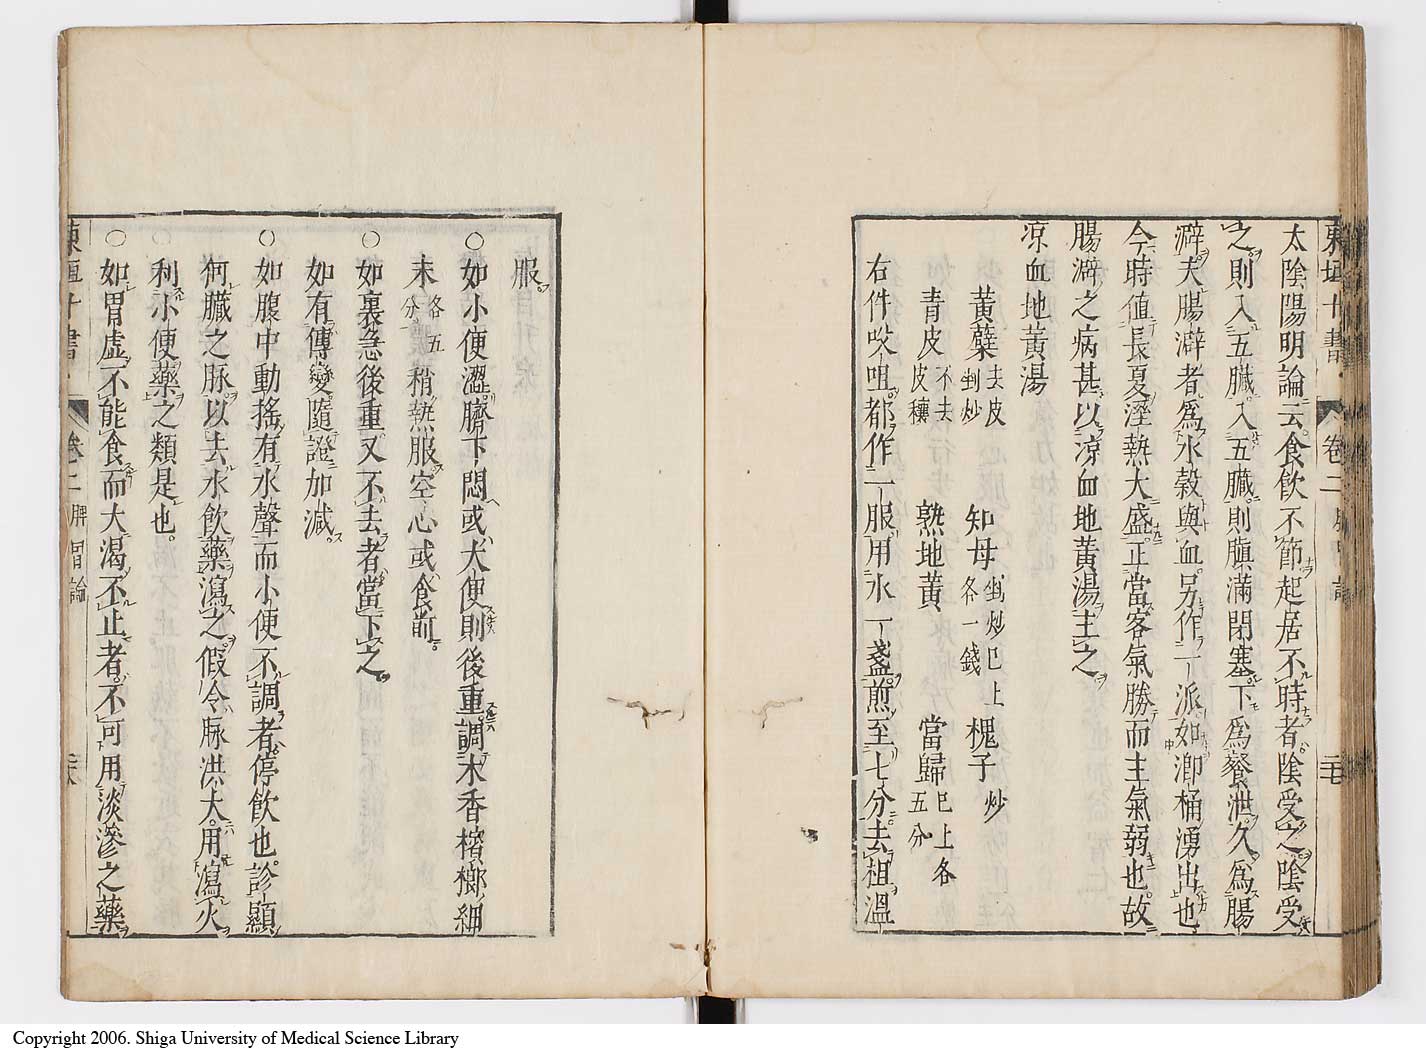 東垣十書
卷二
太陰陽明論云食飲不節起居不時者陰受之陰受
之則入五臟入五臟則䐜滿閉塞下為飱泄久為腸
澼夫腸澼者為水穀與血另作一派如㵠桶湧出也
今時值長夏溼熱大盛正當客氣勝而主氣弱也故
腸澼之病甚以涼血地黃湯主之
涼血地黃湯
黃蘗去皮剉炒 知母剉炒已上各一錢 槐子炒
青皮不去皮穰 熟地黃 當歸已上各五分
右件㕮咀都作一服用水一盞煎至七分去柤溫
服
○如小便澀臍下悶或大便則後重調木香檳榔細
末各五分稍熱服空心或食前
○如裏急後重又不去者當下之
如有傳變隨證加減
○如腹中動搖有水聲而小便不調者停飲也診顯
何臟之脉以去水飲藥瀉之假令脉洪大用瀉火
利小便藥之類是也
○如胃虛不能食而大渴不止者不可用淡滲之藥
東垣十書
卷二 脾胃論
Copyright 2006. Shiga University of Medical Science Library